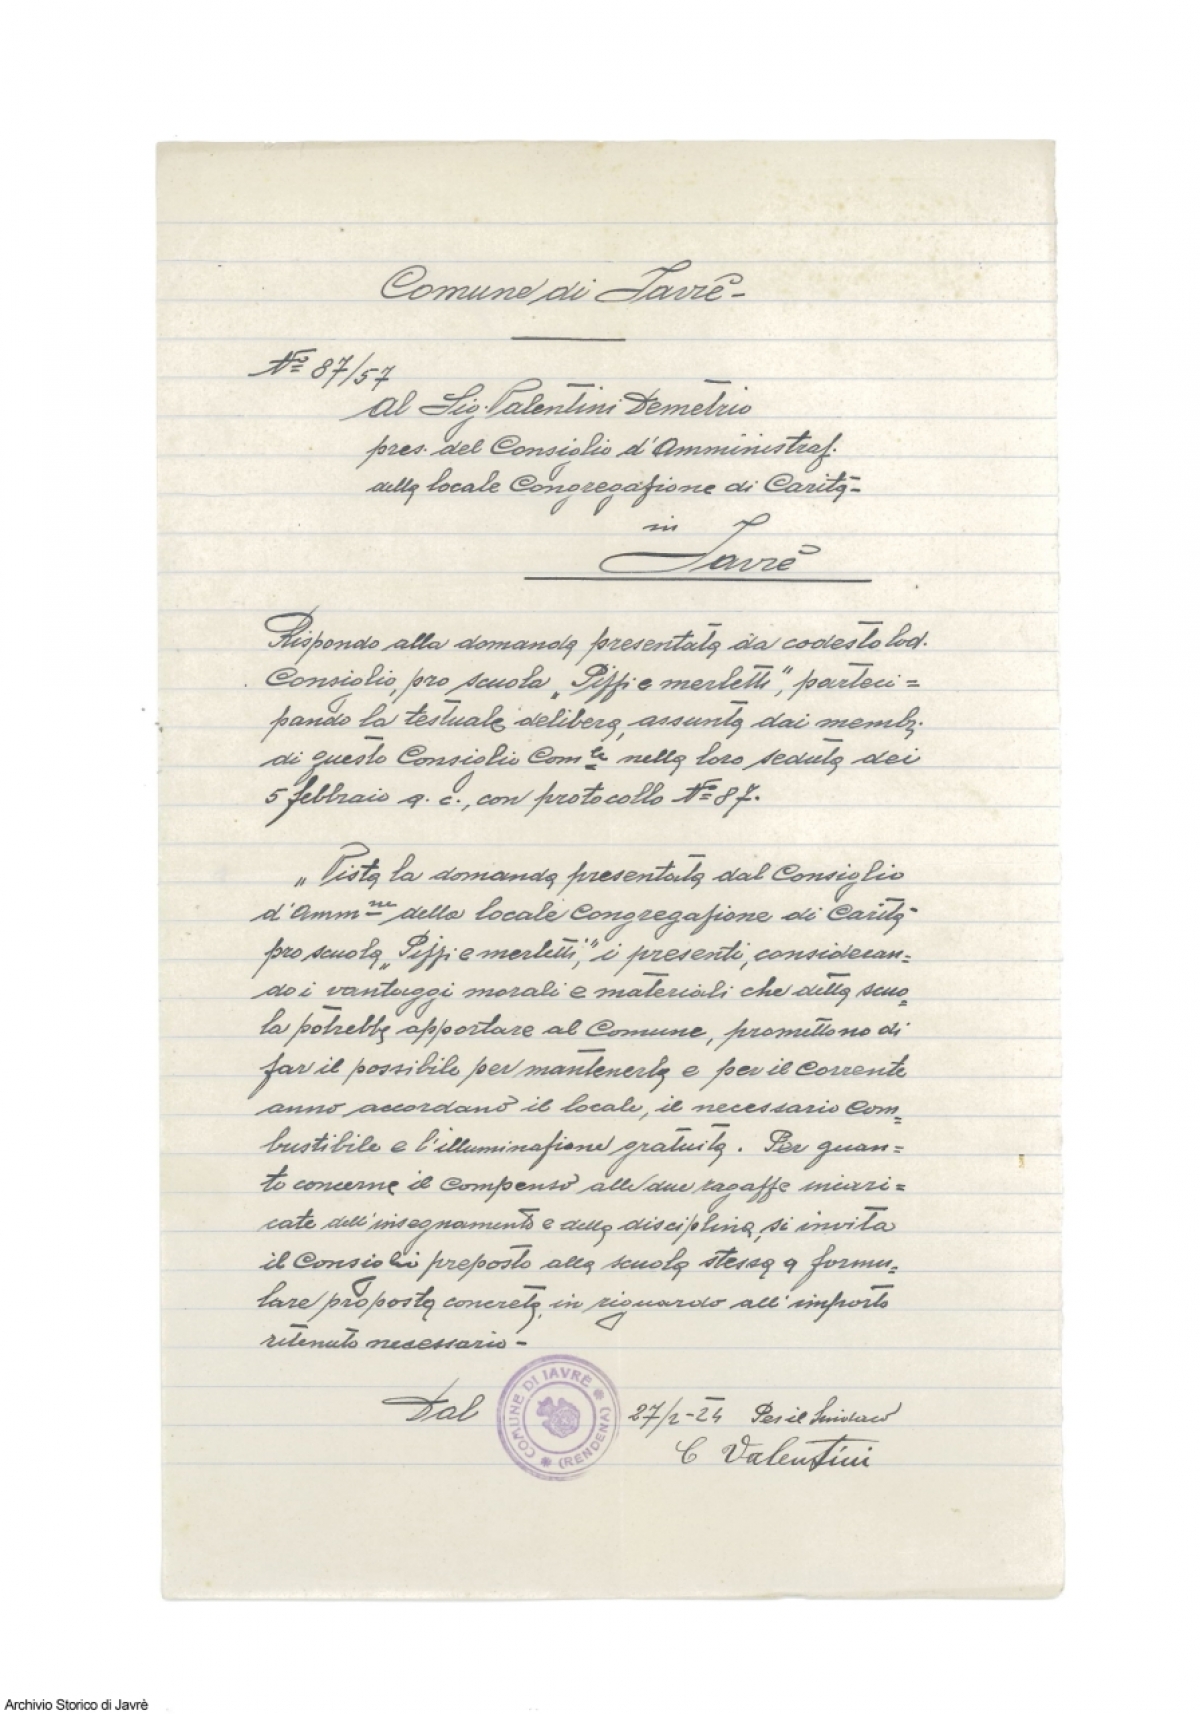 Comune di Javrè-
Nº 87/57
Al Sig. Valentini Demetrio
pres. del Consiglio d'Amministraz.
della locale Congregazione di Carità-
in
Javrè
Rispondo alla domanda presentata da codesto lod.
Consiglio, pro scuola „Pizzi e merletti", parteci=
pando la testuale delibera, assunta dai membr.
di questo Consiglio Comle nella loro seduta dei
5 febbraio a. c., con protocollo Nº 87.
„Vista la domanda presentata dal Consiglio
d'Ammne della locale Congregazione di Carità-
pro scuola „Pizzi e merletti," i presenti, consideran=
do i vantaggi morali e materiali che detta scuo=
la potrebbe apportare al Comune, promettono di
far il possibile per mantenerla e per il corrente
anno accordano il locale, il necessario com=
bustibile e l'illuminazione gratuita. Per quan=
to concerne il compenso alle due ragazze incari=
cate dell'insegnamento e della disciplina, si invita
il Consigli preposto alla scuola stessa a formu=
lare proposta concreta, in riguardo all'importo
ritenuto necessario-
Dal
COMUNE DI JAVRÈ
(RENDENA)
27/2-24 Per il Sindaco
C Valentini
Archivio Storico di Javrè